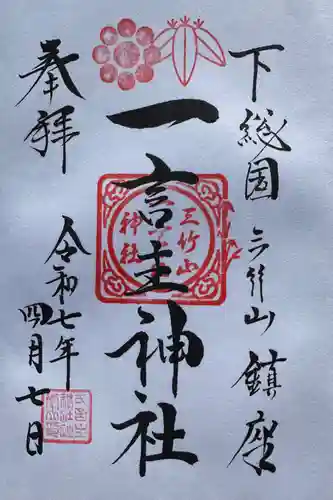 下総国三竹山鎮座
一言主神社
三竹山
神社
奉拝
令和七年
四月七日